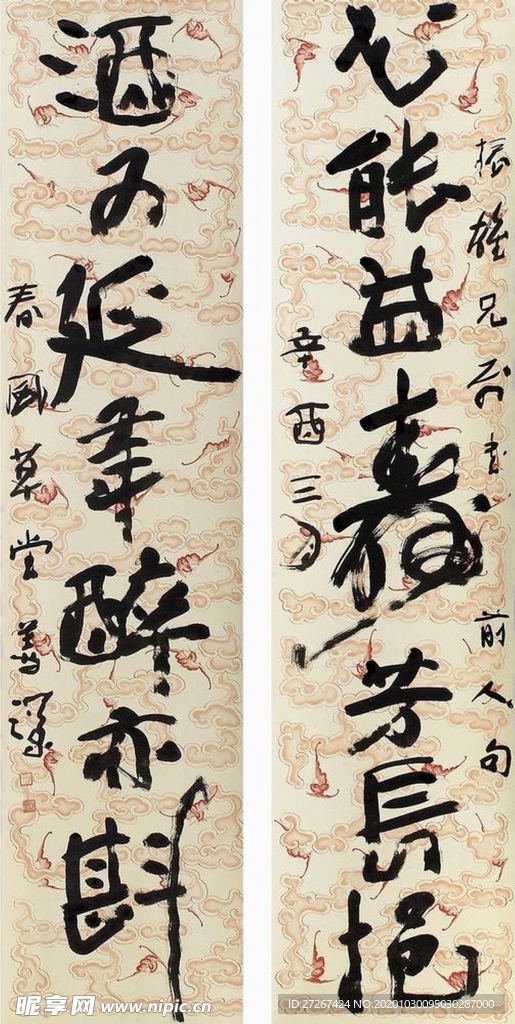 振雄兄属书 前人句
花能益壽芳長挹
辛酉三月
酒为延年醉亦斟
春風草堂
昵享网 www.nipic.cn
ID:27267424 NO:20201030095030287000